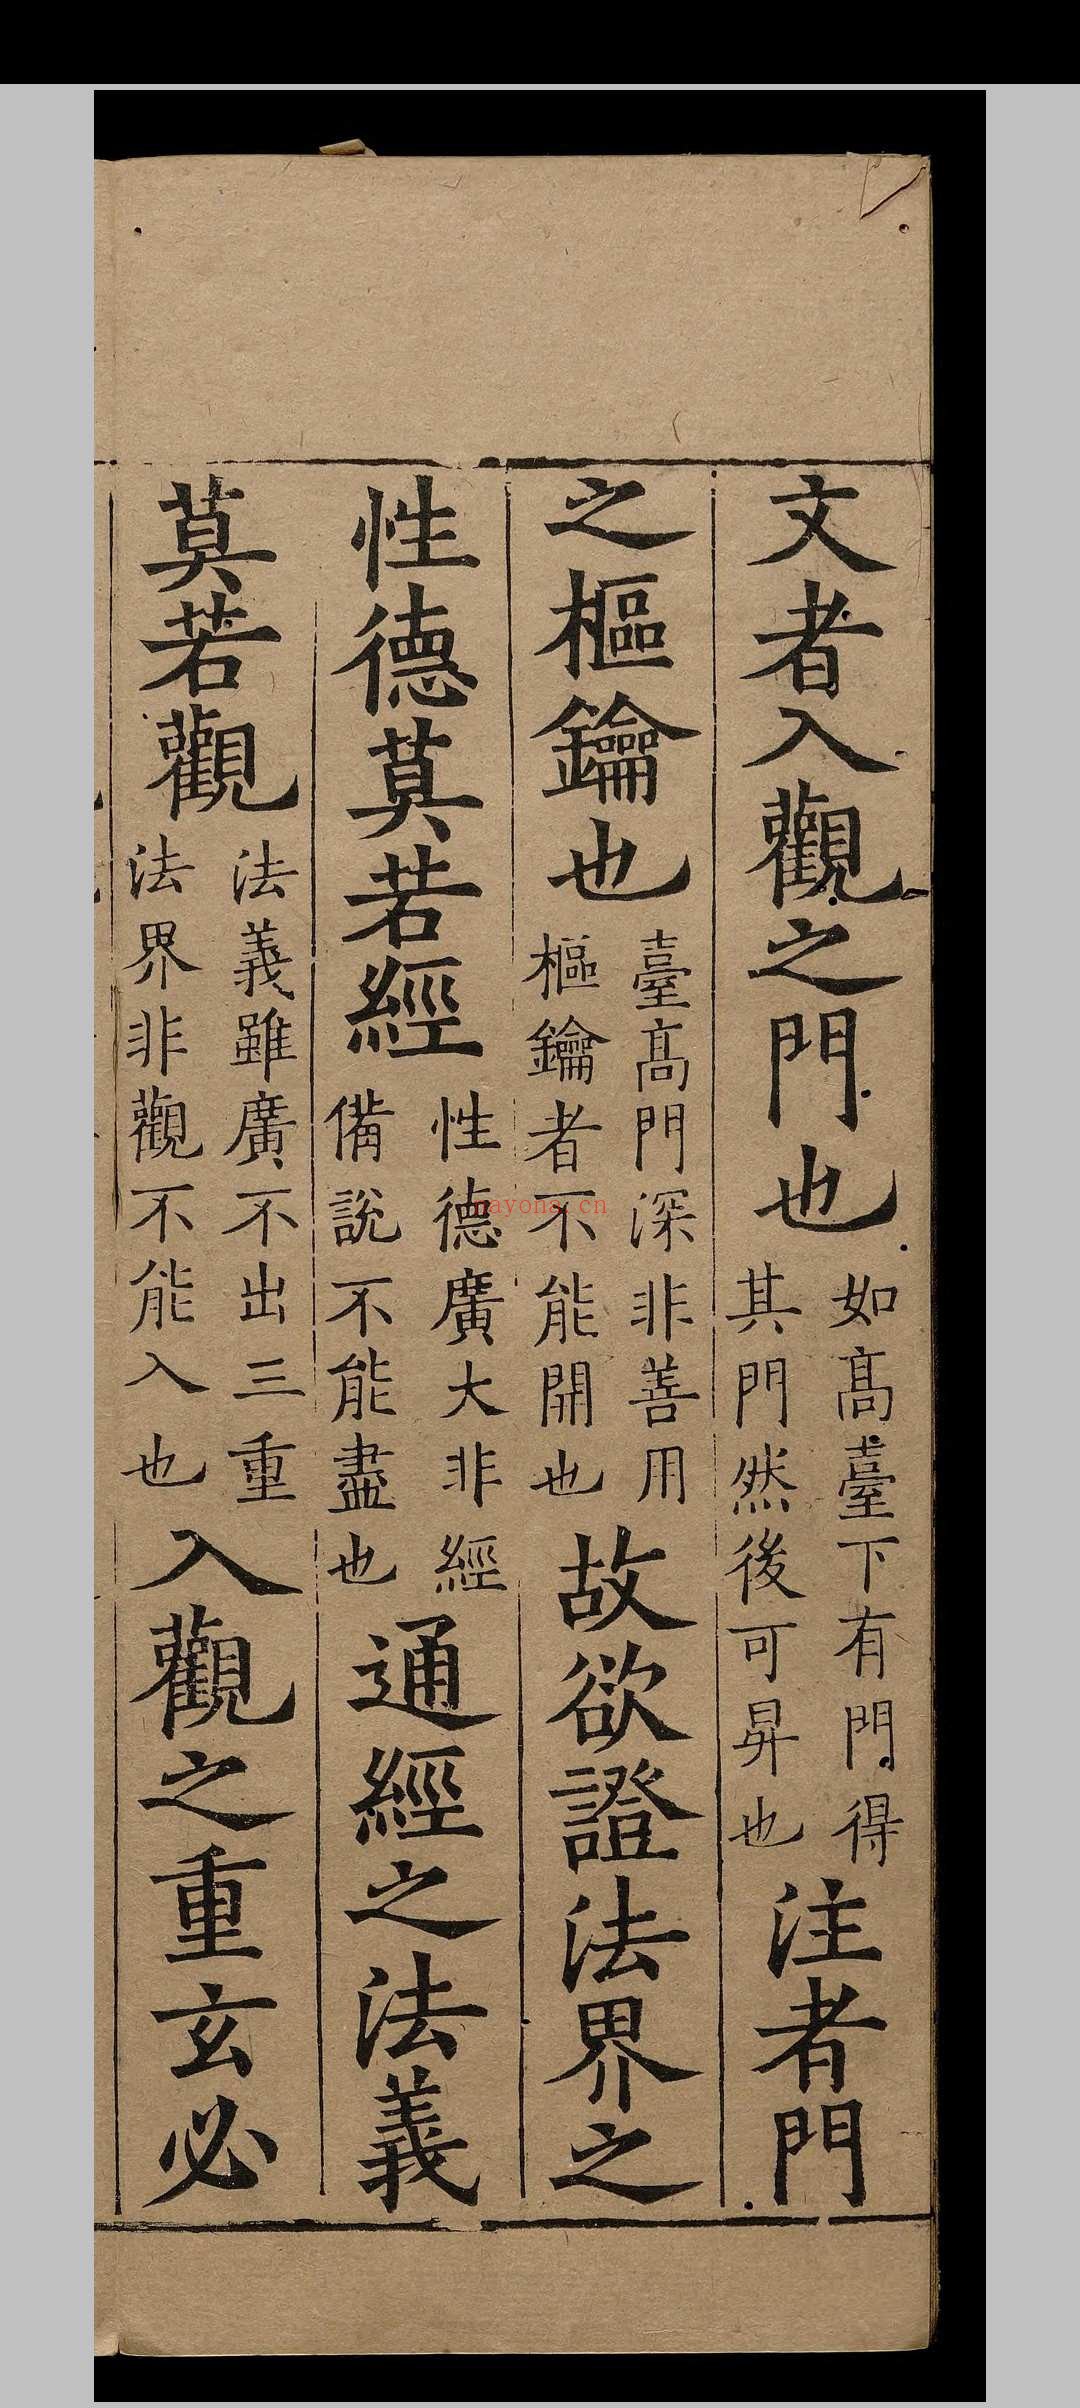 文者入觀之門也如高臺下有門得其門然後可昇也注者門
之樞鑰也臺高門深非善用樞鑰者不能開也故欲證法界之
性德莫若經性德廣大非經備說不能盡也通經之法義
莫若觀法義雖廣不出三重法界非觀不能入也入觀之重玄必